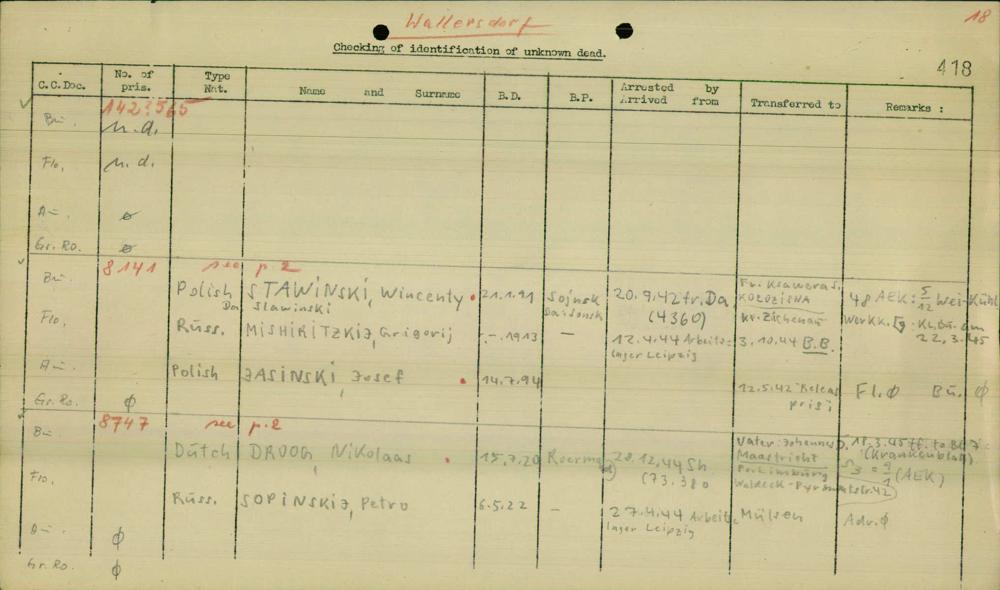 Wallersdorf
18
Checking of identification of unknown dead.
418
C.C.Doc. No. of pris. Type Nat. Name and Surname B.D. B.P. Arrested by Arrived from Transferred to Remarks :
142?565
Bu. n.d.
Flo. n.d.
Au. ø
Gr.Ro. ø
8141 see p.2
Bu. Polish STAWiNSKi, Wincenty 21.1.91 Sojnsk 20.9.42 tr. Da Fr. Ksawera S. 48 AEK: 5/12 Wei-Kühl
Da: Slawinski (4360) KOLOZIENA
Flo. kr. Zichenau Werkk.
Russ. MiSHiRiTZKiJ, Grigorij -.-.1913 — 12.4.44 Arbeits= 3.10.44 B.B. 22.3.45
lager Leipzig
Au. Polish JASiNSKi, Josef 14.7.94
Gr.Ro. ø 12.5.42 Fl.ø Bu. ø
8747 see p.2
Bu. Dutch DROOG, Nikolaas 15.7.20 28.12.44 Sh Vater: Johannes D. 11.3.45
(73.380 Maastricht (Krankenblatt)
Flo. (AEK)
Russ. SOPiNSKiJ, Petro 6.5.22 — 27.4.44 Arbeits= Mülsen Adv.ø
lager Leipzig
Au. ø
Gr.Ro. ø